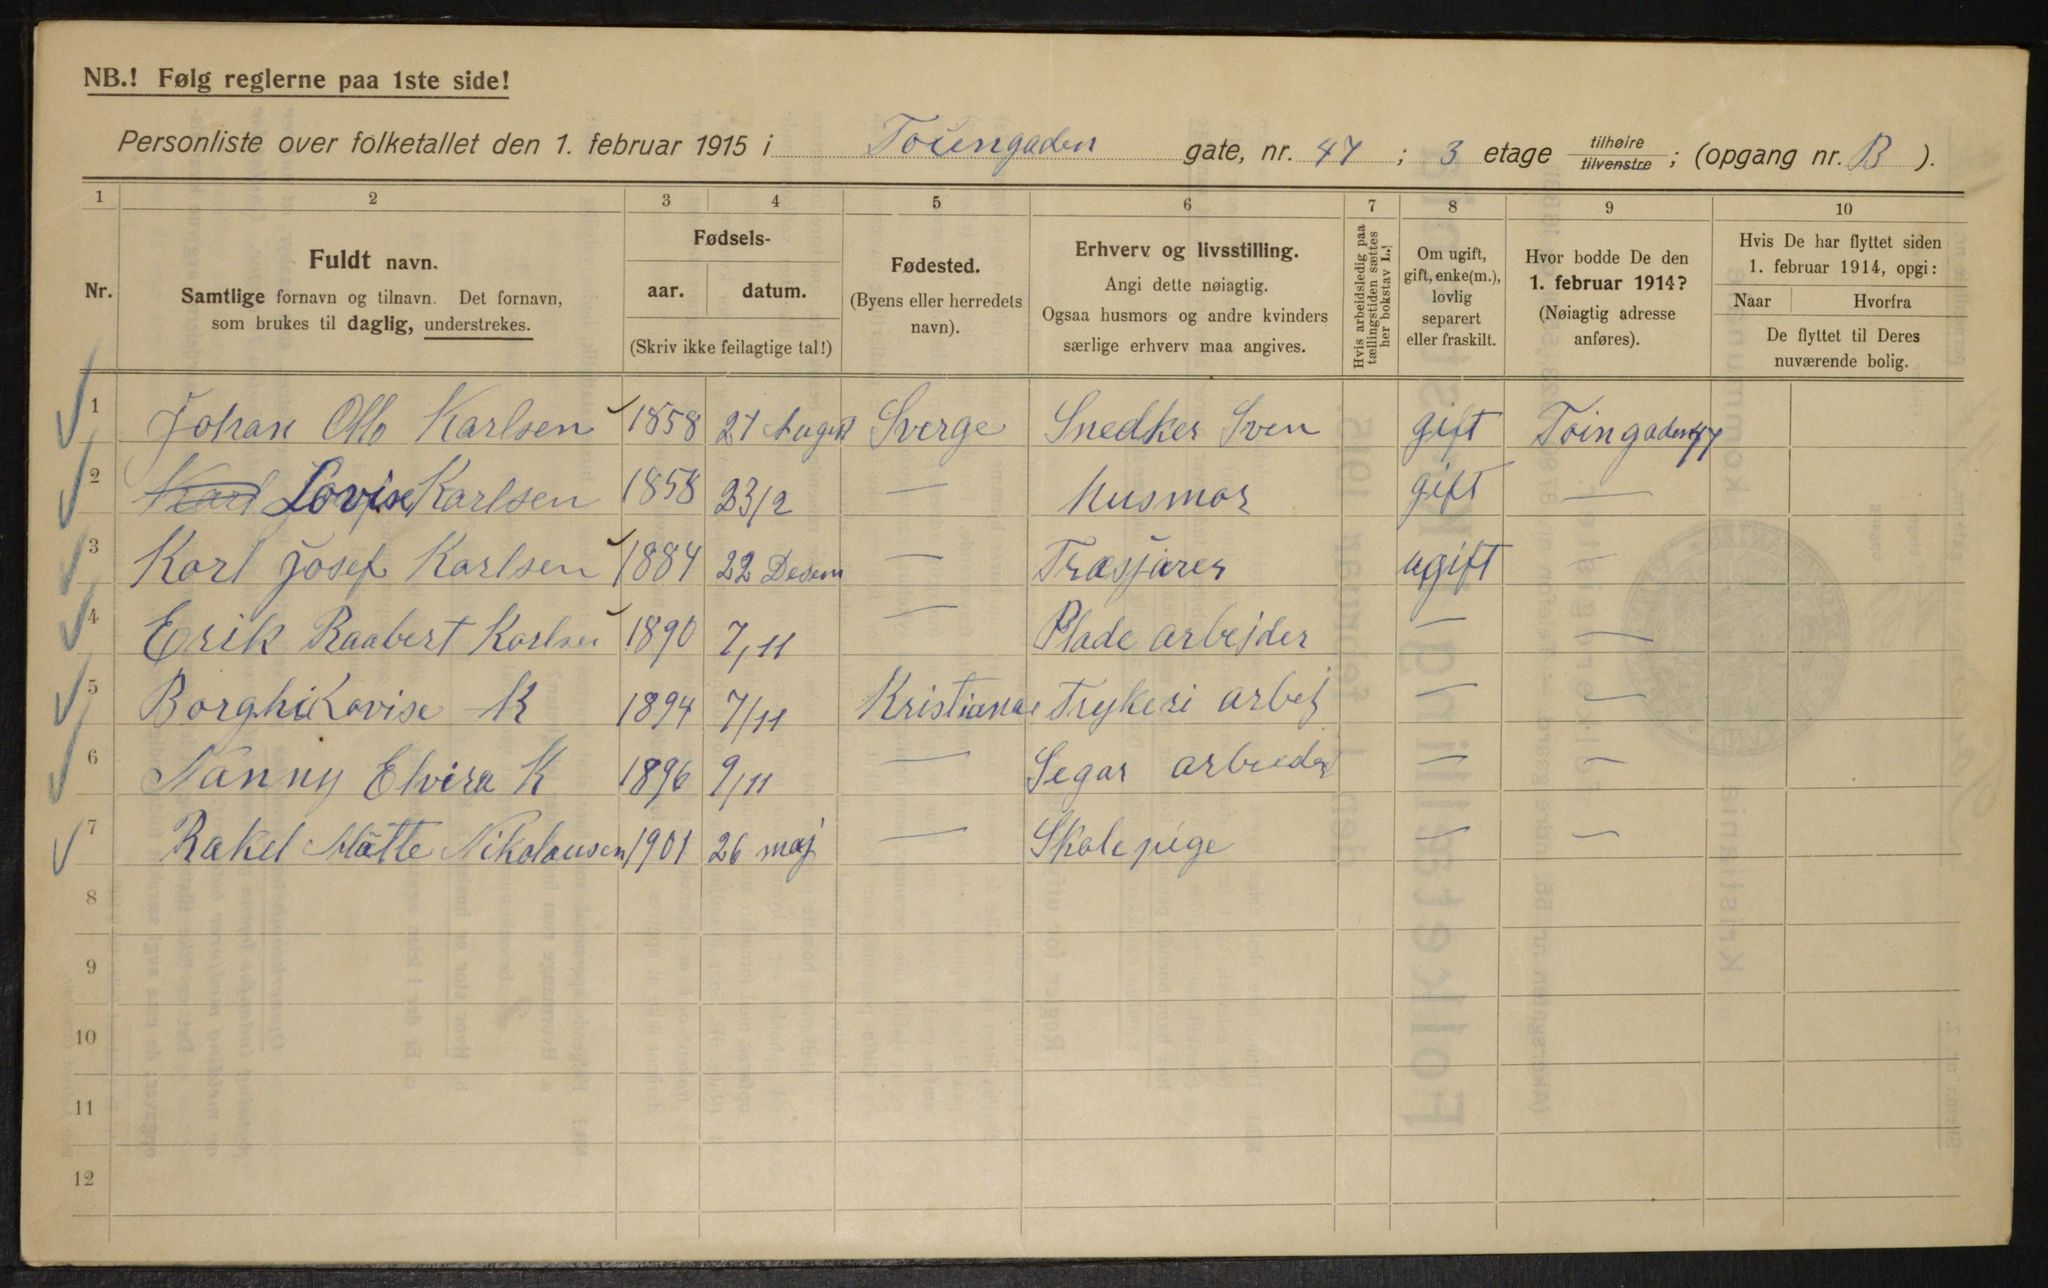 NB.! Følg reglerne paa 1ste side!
Personliste over folketallet den 1. februar 1915 i Toiengaden gate, nr. 47 ; 3 etage tilhøire tilvenstre ; (opgang nr. B ).
1 2 3 4 5 6 7 8 9 10
Nr.
Fuldt navn.
Samtlige fornavn og tilnavn. Det fornavn,
som brukes til daglig, understrekes.
Fødsels-
aar. datum.
(Skriv ikke feilagtige tal!)
Fødested.
(Byens eller herredets
navn).
Erhverv og livsstilling.
Angi dette nøiagtig.
Ogsaa husmors og andre kvinders
særlige erhverv maa angives.
Hvis arbeidsledig paa
tællingstiden sættes
her bokstav L.!
Om ugift,
gift, enke(m.),
lovlig
separert
eller fraskilt.
Hvor bodde De den
1. februar 1914?
(Nøiagtig adresse
anføres).
Hvis De har flyttet siden
1. februar 1914, opgi:
Naar Hvorfra
De flyttet til Deres
nuværende bolig.
1 Johan Otto Karlsen 1858 27 August Sverge Snedker Sven gift Toingaden 47
2 Karl Lovise Karlsen 1858 23/2 — Husmor gift —
3 Karl Josef Karlsen 1884 22 Desem — Træsjærer ugift —
4 Erik Raabert Karlsen 1890 7/11 — Plade arbejder — —
5 Borghi Lovise K 1894 7/11 Kristiania Trykeri arbej — —
6 Nanny Elvira K 1896 9/11 — Segar arbeider — —
7 Rakel Matte Nikolausen 1901 26 maj — Skole pige — —
8
9
10
11
12